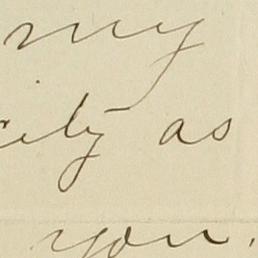 my
ily as
you.